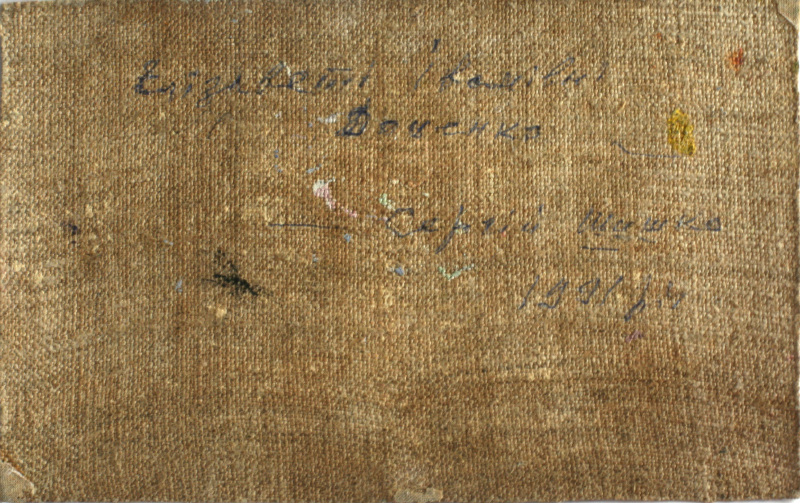 Єлізаветі Іванівні
Доценко
Сергій Шишко
1991